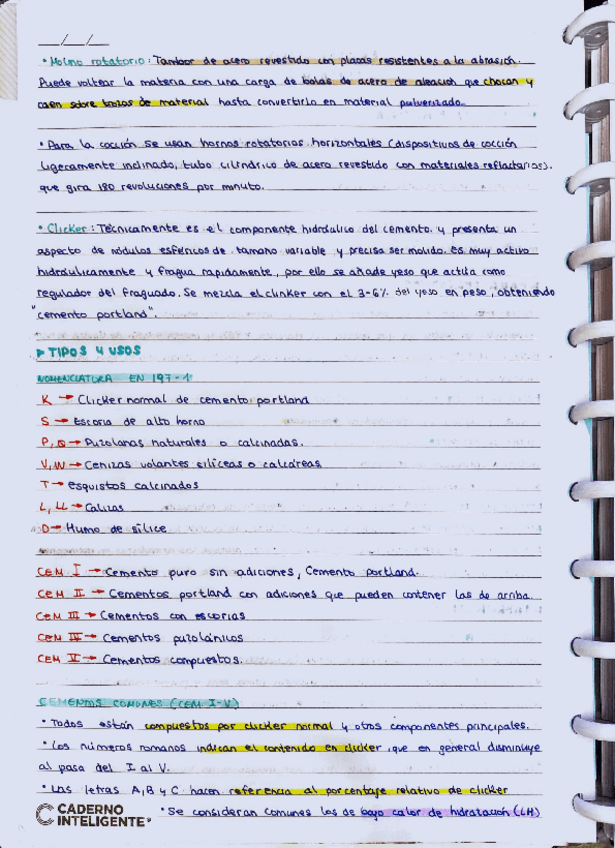 __/__/__
• Molino rotatorio: Tambor de acero revestido con placas resistentes a la abrasión.
Puede voltear la materia con una carga de bolas de acero de aleación que chocan y
caen sobre trozos de material hasta convertirlo en material pulverizado.
• Para la cocción se usan hornos rotatorios horizontales (dispositivos de cocción
ligeramente inclinado, tubo cilíndrico de acero revestido con materiales reflactarios).
que gira 180 revoluciones por minuto.
• Clicker: Técnicamente es el componente hidráulico del cemento. y presenta un
aspecto de nódulos esféricos de tamaño variable y precisa ser molido. Es muy activo
hidráulicamente y fragua rapidamente, por ello se añade yeso que actúa como
regulador del fraguado. Se mezcla el clinker con el 3-6% del yeso en peso, obteniendo
"cemento portland".
▶ TIPOS Y USOS
NOMENCLATURA EN 197-1
K → Clicker normal de cemento portland
S → Escoria de alto horno
P, Q → Puzolanas naturales o calcinadas.
V, W → Cenizas volantes silíceas o calcáreas
T → esquistos calcinados
L, LL → Calizas
D → Humo de sílice
CEM I → Cemento puro sin adiciones, Cemento portland.
CEM II → Cementos portland con adiciones que pueden contener las de arriba.
CEM III → Cementos con escorias
CEM IV → Cementos puzolánicos
CEM V → Cementos compuestos.
CEMENTOS COMUNES (CEM I-V)
• Todos están compuestos por clicker normal y otros componentes principales.
• Los números romanos indican el contenido en clicker, que en general disminuye
al pasa del I al V.
• Las letras A, B y C hacen referencia al porcentaje relativo de clicker
• Se consideran comunes los de bajo calor de hidratación (LH)
CADERNO
INTELIGENTE®